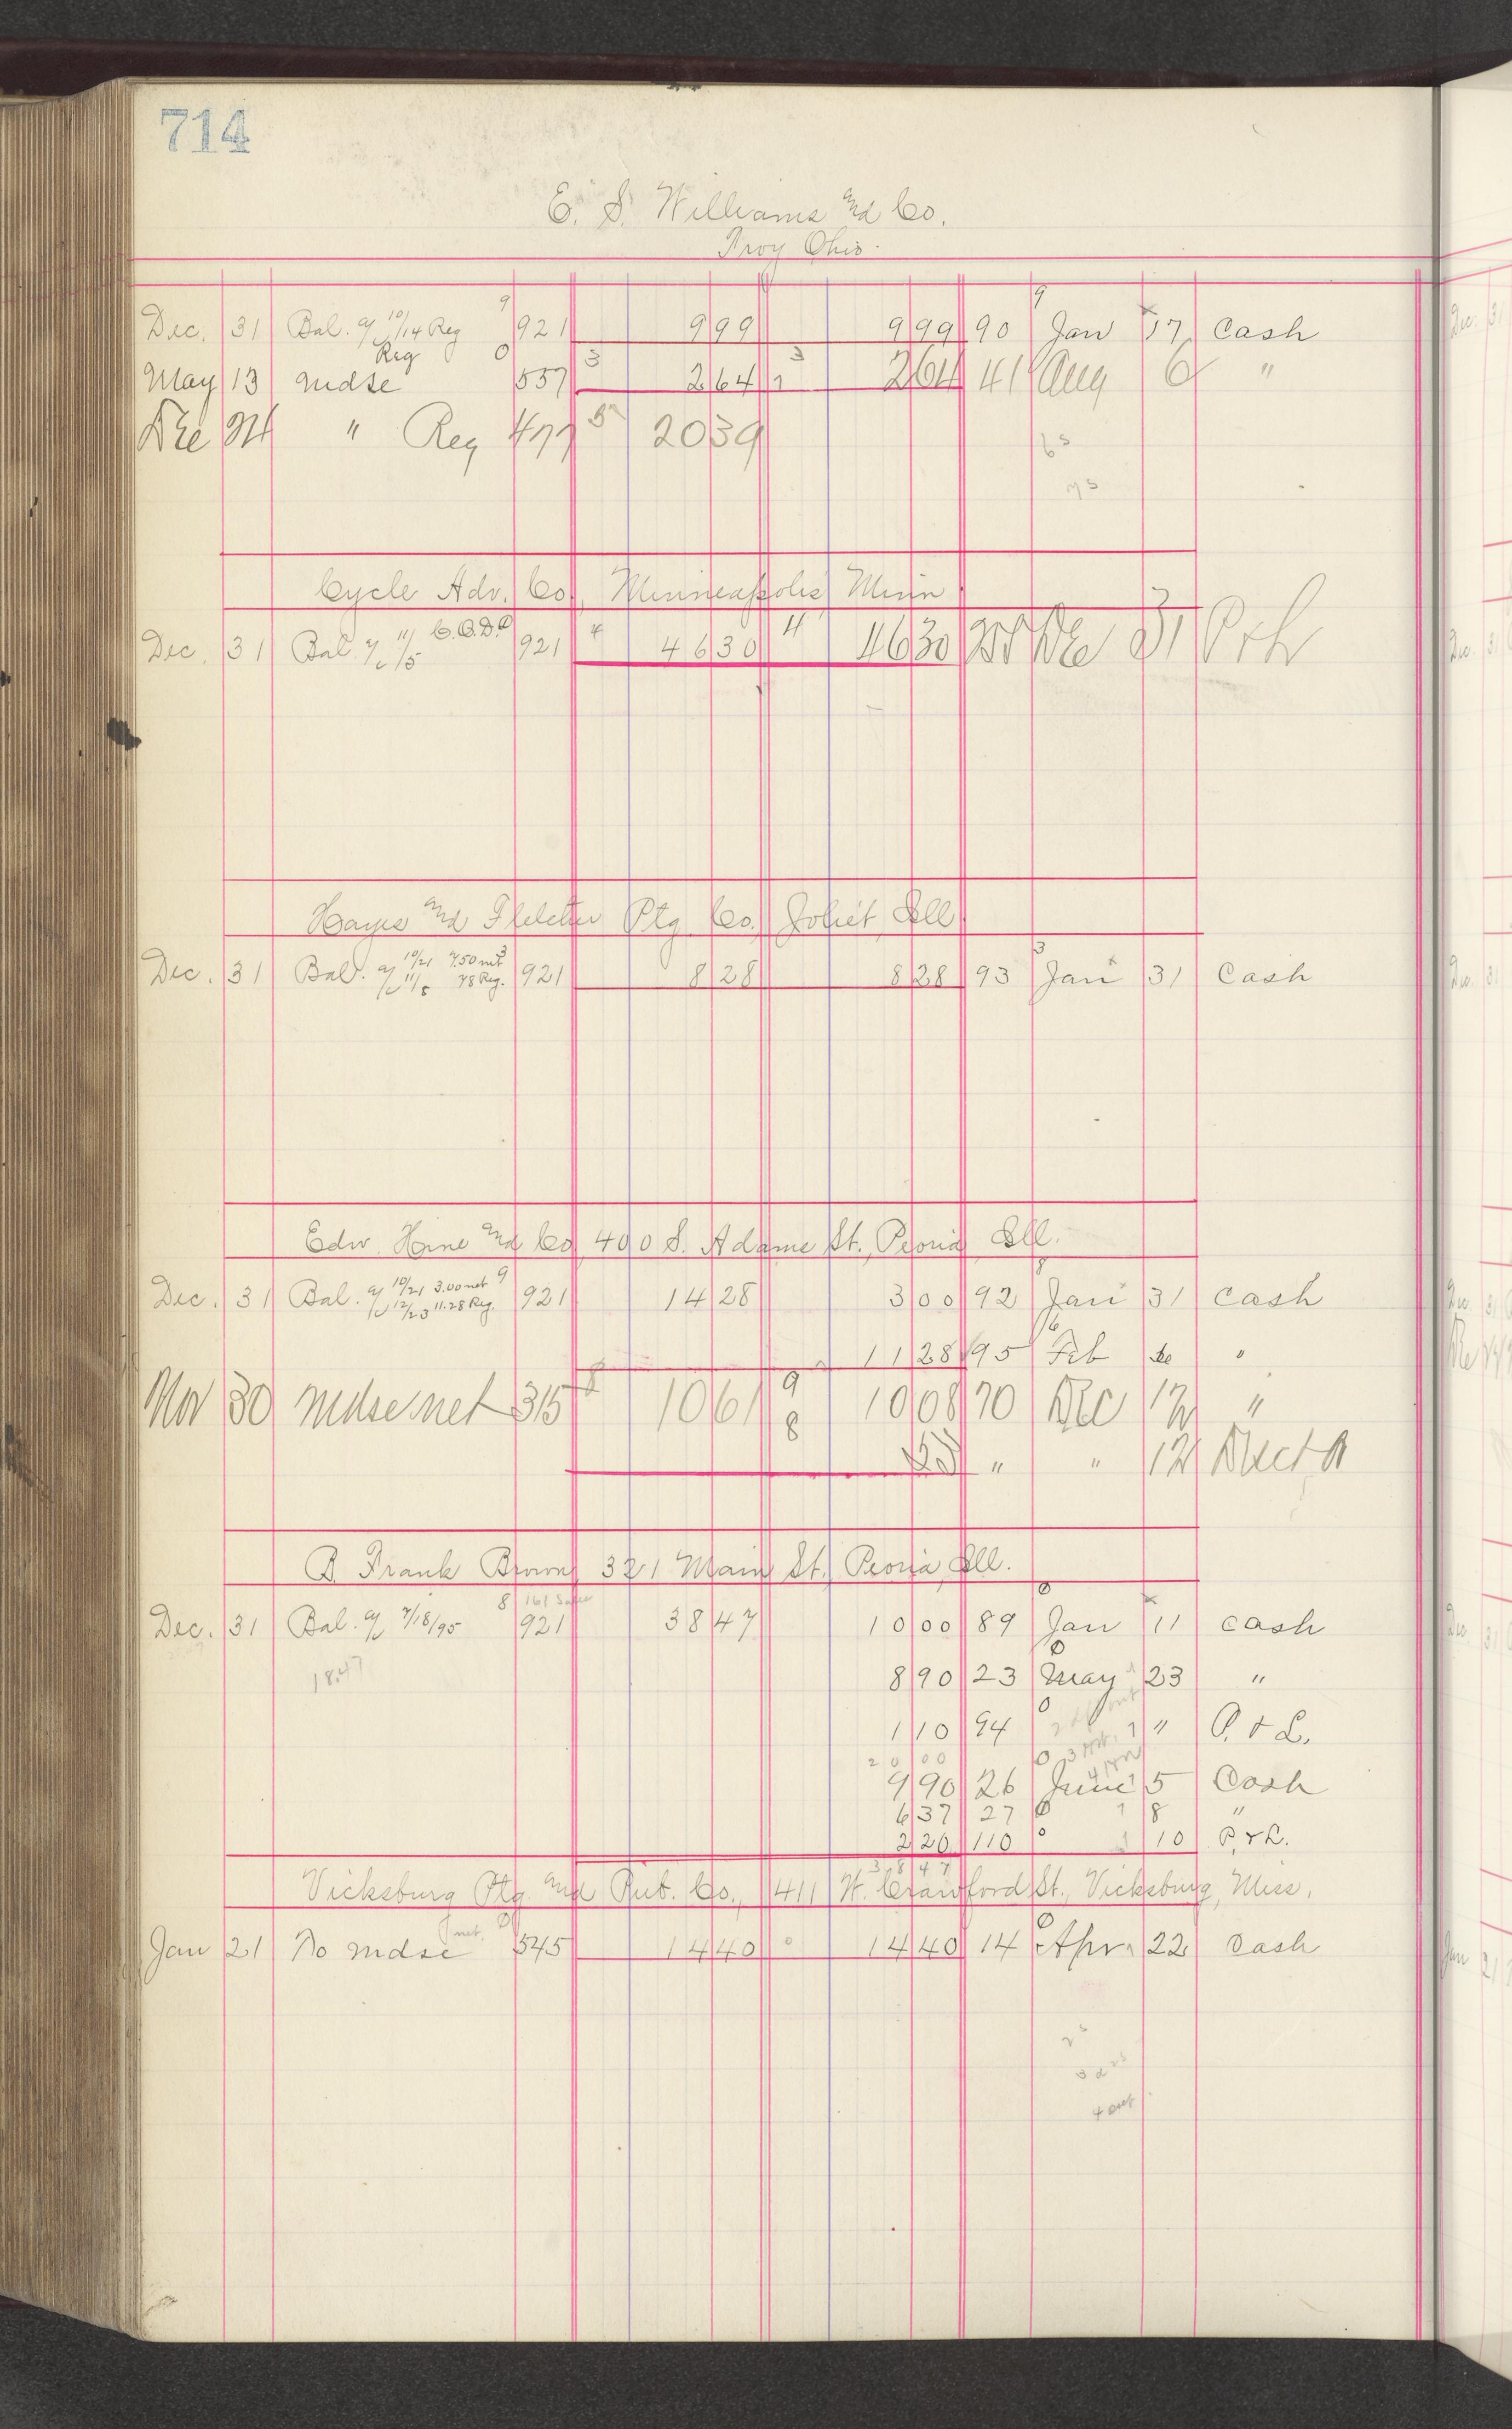 714
E. S. Williams and Co.
Troy Ohio.
Dec. 31 Bal. a/c 10/14 Reg 9 921 999 999 90 9 Jan 17 Cash
May 13 mdse Reg 0 557 3 264 3 264 41 Aug 6 "
24 " Reg 477 2039
Cycle Adv. Co., Minneapolis Minn
Dec. 31 Bal a/c 11/5 C.O.D. 921 4 4630 4 4630 31
Hayes and Fletcher Ptg. Co. Joliet, Ill.
Dec. 31 Bal. a/c 10/21 7.50 net 11/5 78 Reg. 921 828 828 93 3 Jan 31 Cash
Edw. Hine and Co 400 S. Adams St., Peoria Ill.
Dec. 31 Bal. a/c 10/21 3.00 net 12/23 11.28 Reg. 9 921 1428 300 92 Jan 31 Cash
1128 95 Feb "
Nov 30 mdse net 315 8 1061 9 1008 70 Dec 12 "
8 53 " " 12
B. Frank Brown 321 Main St. Peoria, Ill.
Dec. 31 Bal. a/c 7/18/95 8 921 3847 1000 89 Jan 11 Cash
18.47 890 23 May 23 "
110 94 " P. & L.
20 00
990 26 June 5 Cash
637 27 8 "
220 110 10 P. & L.
38 47
Vicksburg Ptg. and Pub. Co., 411 W. Crawford St., Vicksburg, Miss.
Jan 21 To mdse net 545 1440 1440 14 Apr. 22 Cash
4 out